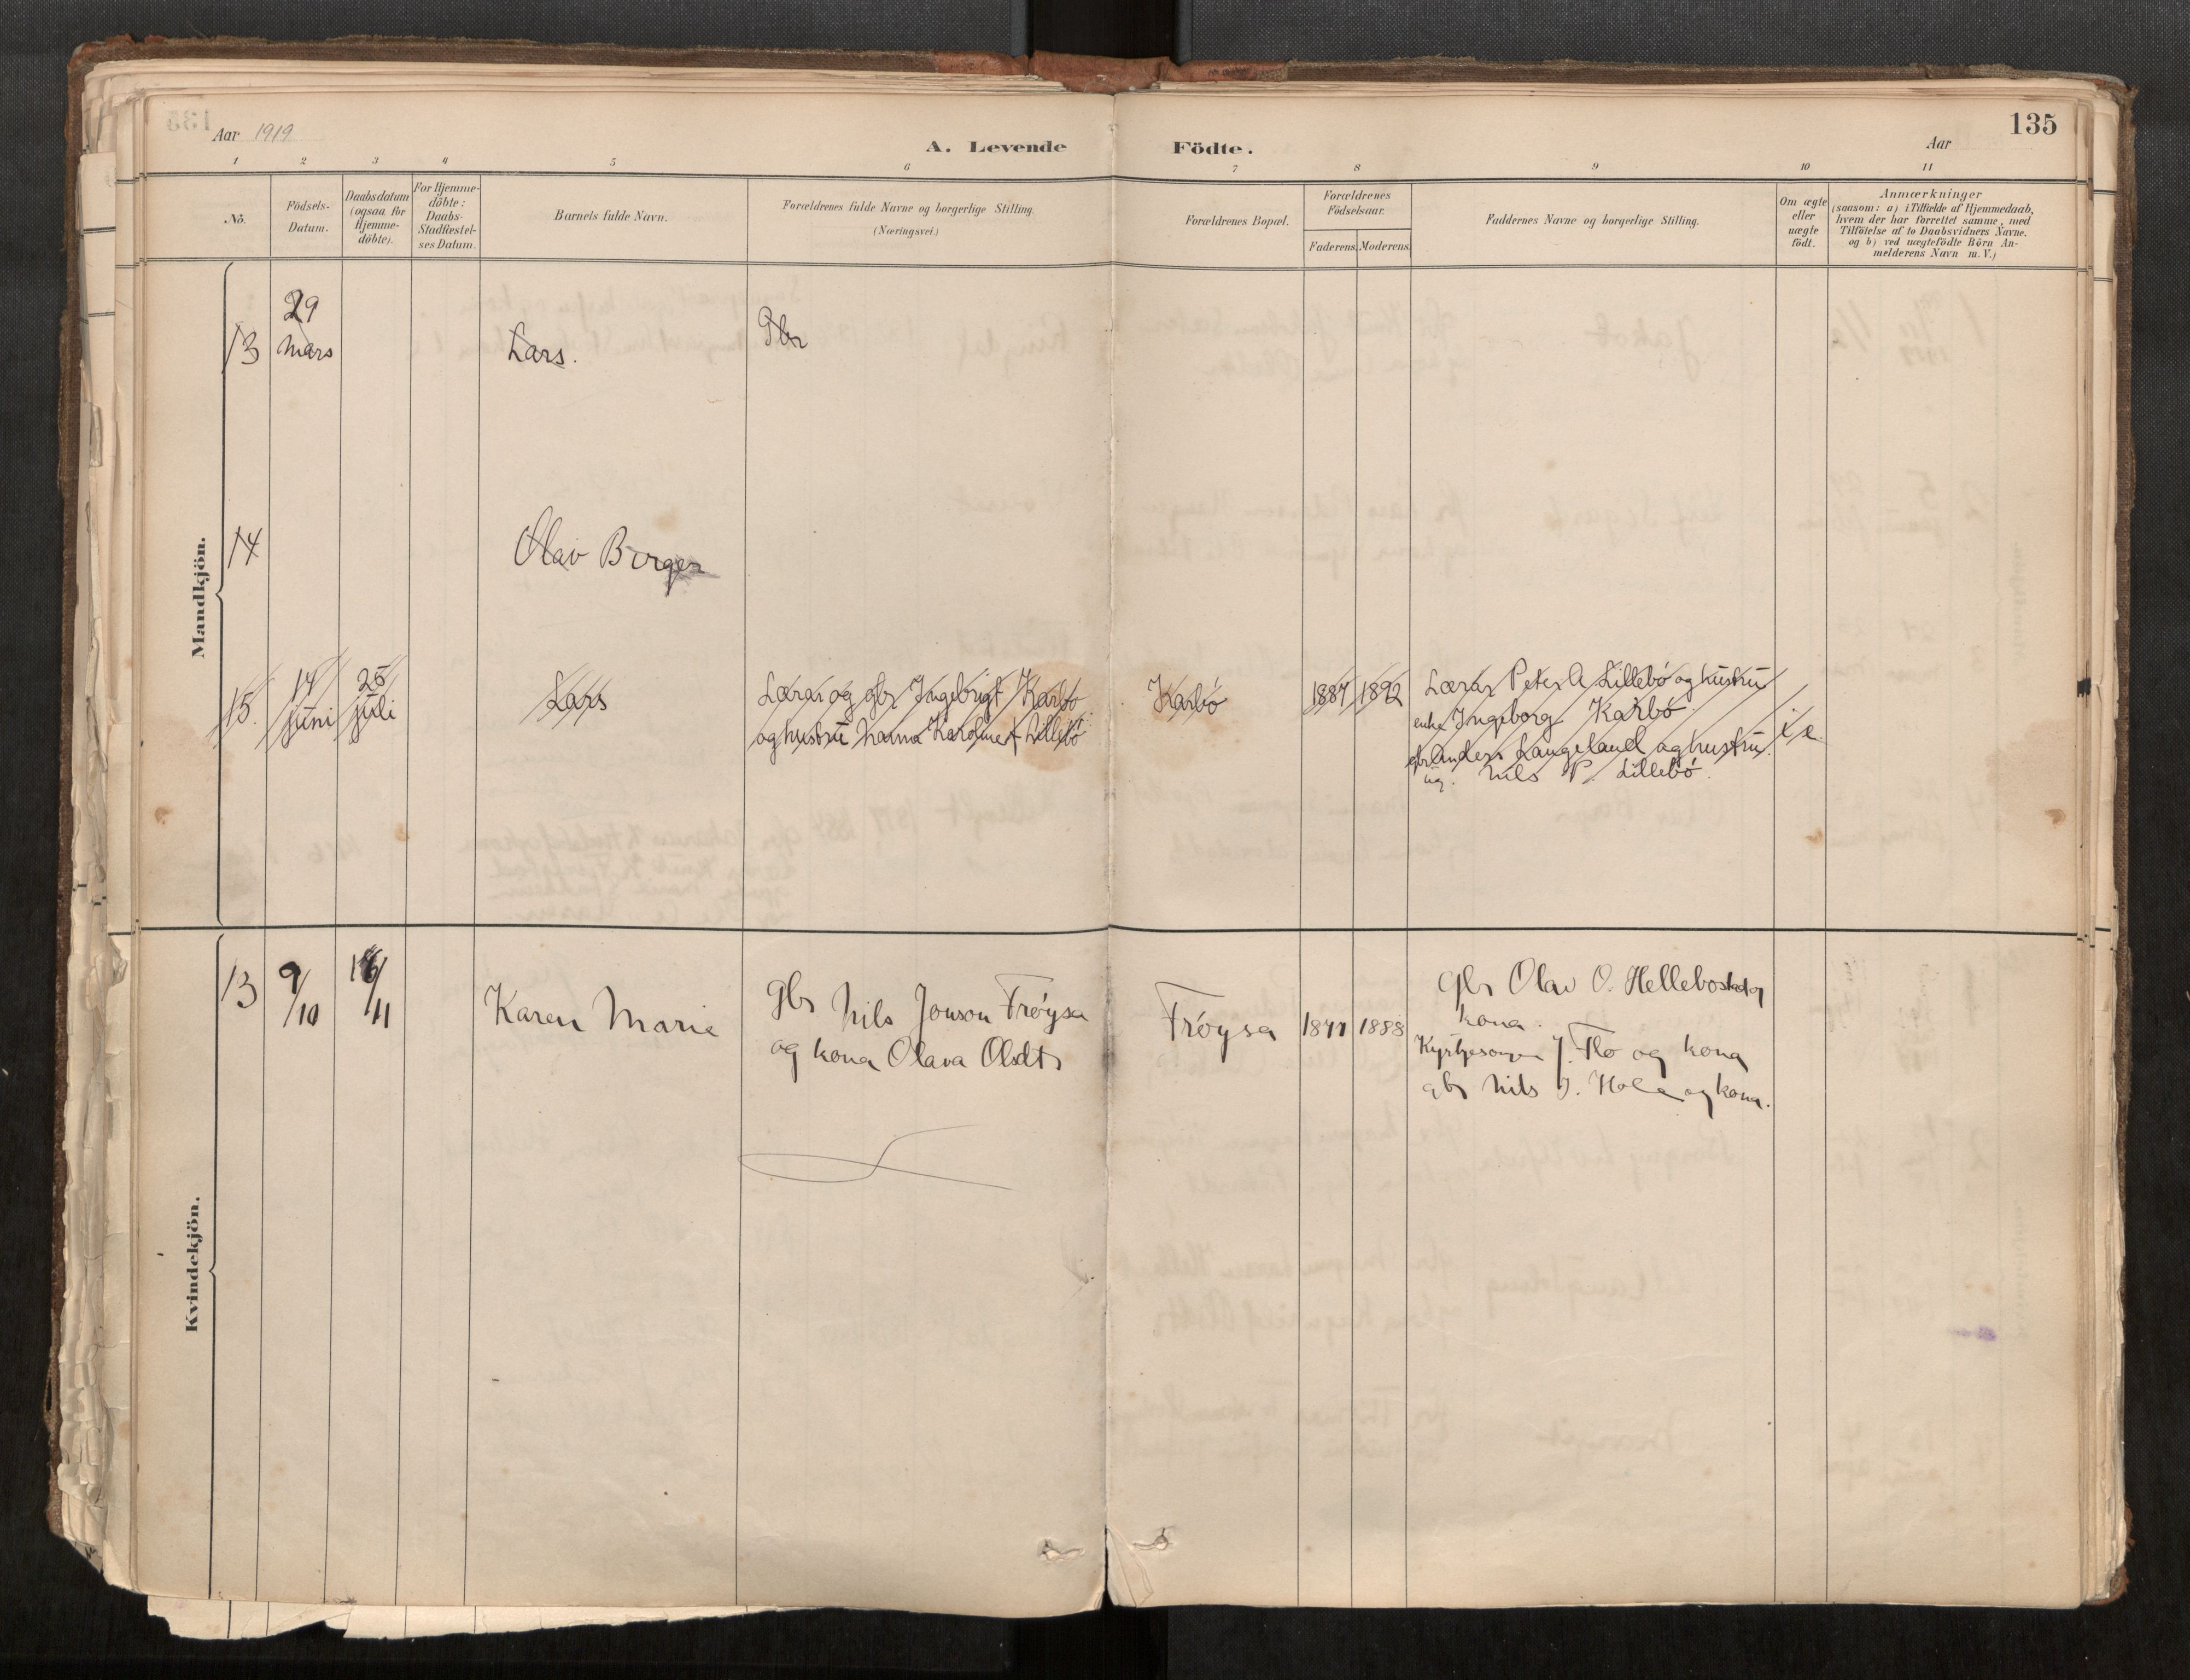 Aar 1919
A. Levende Födte.
Aar
135
1 2 3 4 5 6 7 8 9 10 11
Nö.
Födsels-
Datum.
Daabsdatum
(ogsaa for
Hjemme-
döbte).
For Hjemme-
döbte:
Daabs-
Stadfæstel-
ses Datum.
Barnets fulde Navn.
Forældrenes fulde Navne og borgerlige Stilling.
(Næringsvei.)
Forældrenes Bopæl.
Forældrenes
Födselsaar.
Faderens. Moderens.
Faddernes Navne og borgerlige Stilling.
Om ægte
eller
uægte
födt.
Anmærkninger
(saasom: a) i Tilfælde af Hjemmedaab,
hvem der har forrettet samme, med
Tilföielse af to Daabsvidners Navne,
og b) ved uægtefödte Börn An-
melderens Navn m. V.)
Mandkjön.
13
29
mars
Lars.
Gbr
14
Olav Birger
15.
14
juni
25
juli
Lars
Lærar og gbr Ingebrigt Karbó
og hustru Nanna Karoline f Lillebó
Karbó
1887 1892
Lærar Peter A Lillebó og hustru
enke Ingeborg Karbó
gbr Anders Langeland og hustru.
ug. Nils P. Lillebó.
i e
Kvindekjön.
13
9/10
16/11
Karen Marie
Gbr Nils Jonson Fróysa
og kona Olava Olsdtr
Fróysa
1871 1888
Gbr Olav O. Hellebostad og
kona.
J. Flo og kona
gbr Nils J. Hole og kona.